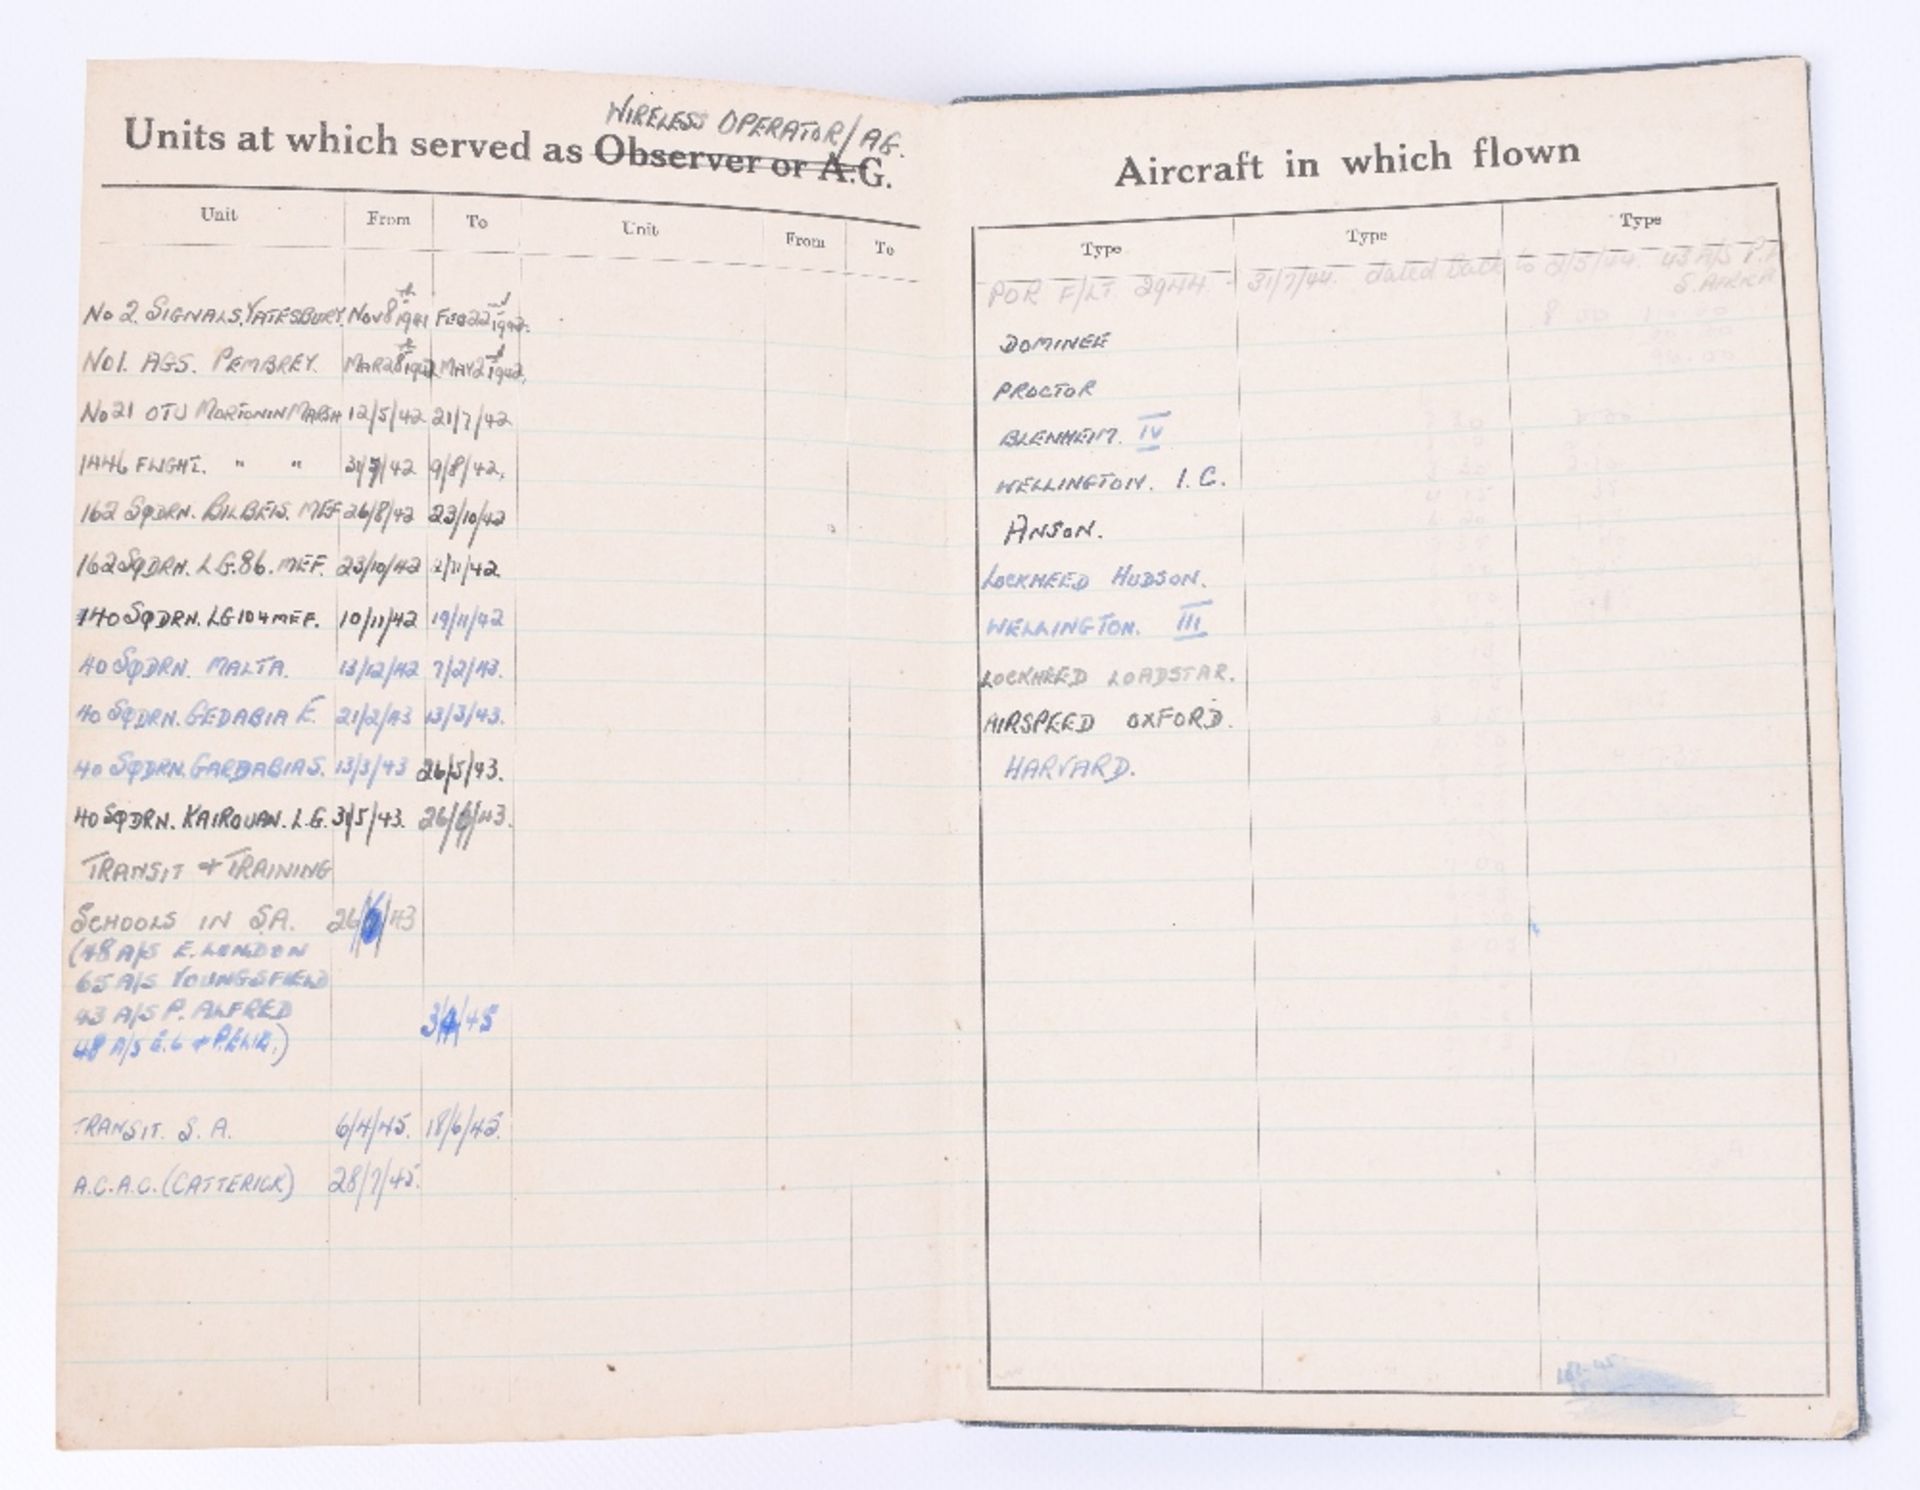 WIRELESS OPERATOR/AG.
Units at which served as Observer or A.G.
Unit From To Unit From To
No 2. SIGNALS, YATESBURY. NOV 8th 1941 FEB 22nd 1942.
No 1. AGS. PEMBREY. MAR 28th 1942 MAY 2nd 1942.
No 21 OTU MORTONINMARSH 12/5/42 21/7/42
1446 FLIGHT. " " 31/7/42 9/8/42.
162 SQDRN. BILBEIS. MEF 26/8/42 23/10/42
162 SQDRN. LG.86. MEF. 23/10/42 2/11/42
40 SQDRN. LG 104 MEF. 10/11/42 19/11/42
40 SQDRN. MALTA. 13/12/42 7/2/43.
40 SQDRN. GEDABIA E. 21/2/43 13/3/43.
40 SQDRN. GARDABIA S. 13/3/43 26/5/43.
40 SQDRN. KAIROUAN. L.G. 31/5/43. 26/6/43.
TRANSIT + TRAINING
SCHOOLS IN S.A. 26/6/43
(48 A/S E. LONDON
65 A/S YOUNGSFIELD
43 A/S P. ALFRED
3/4/45
48 A/S E.L + P.ELIZ.)
TRANSIT. S. A. 6/4/45. 18/6/45.
A.C.A.C. (CATTERICK) 28/7/45.
Aircraft in which flown
Type Type Type
POR F/LT. 2944. 31/7/44. dated back to 2/5/44. 43 A/S P.A
S. AFRICA
DOMINEE
PROCTOR
BLENHEIM. IV
WELLINGTON. I.C.
ANSON.
LOCKHEED HUDSON.
WELLINGTON. III
LOCKHEED LOADSTAR.
AIRSPEED OXFORD.
HARVARD.